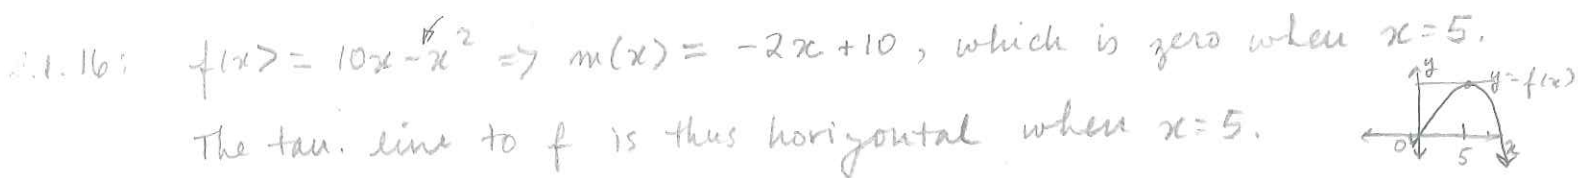 .1.16: f(x) = 10x - x² ⇒ m(x) = -2x + 10, which is zero when x = 5.
The tan. line to f is thus horizontal when x = 5.
y
y = f(x)
0 5 x